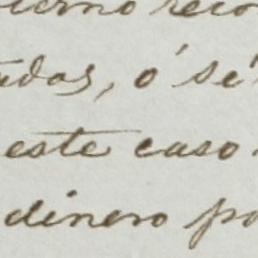 terno reco
udas, ó sé
este caso
dinero po